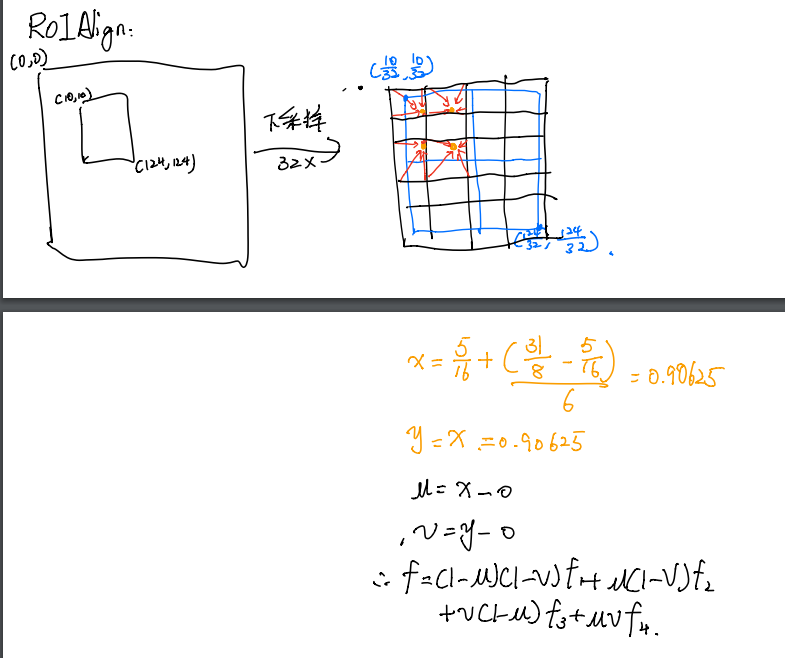 RoIAlign:
(0,0)
(10,10)
(124,124)
下采样
32x
(10/32, 10/32)
(124/32, 124/32).
x = 5/16 + (31/8 - 5/16)/6 = 0.90625
y = x = 0.90625
μ = x - 0
, v = y - 0
∴ f = (1-μ)(1-v)f₁ + μ(1-v)f₂
+ v(1-μ)f₃ + μvf₄.